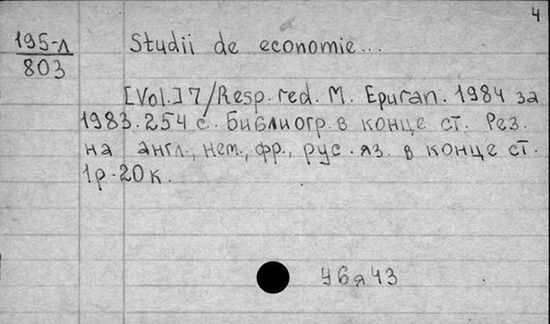 4
195-л
803
Studii de economie...
[Vol.] 7/Resp. red. M. Epuran. 1984 за
1983. 254 с. Библиогр. в конце ст. Рез.
на англ., нем., фр., рус. яз. в конце ст.
1р. 20к.
У6я43